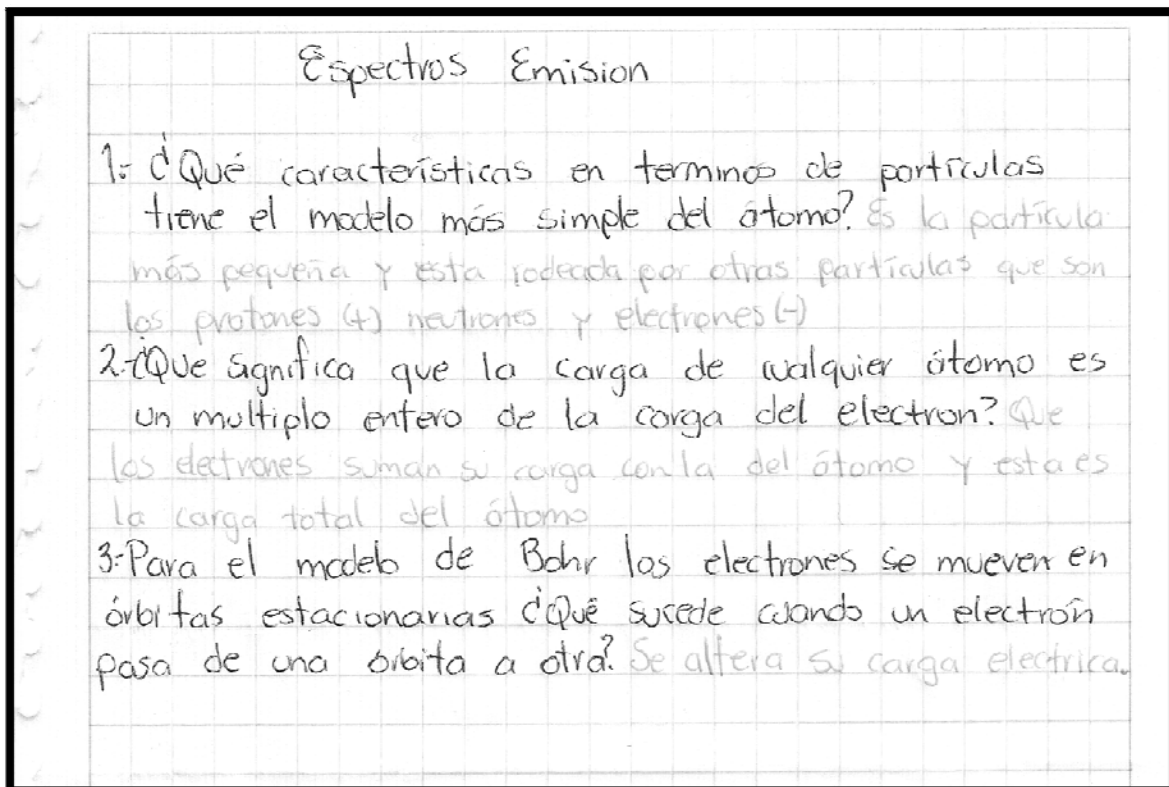 Espectros Emision
1.- ¿Qué características en terminos de partículas
tiene el modelo más simple del átomo? Es la partícula
más pequeña y esta rodeada por otras partículas que son
los protones (+) neutrones y electrones (-)
2.- ¿Que significa que la carga de cualquier átomo es
un multiplo entero de la carga del electron? Que
los electrones suman su carga con la del átomo y esta es
la carga total del átomo
3.- Para el modelo de Bohr los electrones se mueven en
órbitas estacionarias ¿Qué sucede cuando un electrón
pasa de una órbita a otra? Se altera su carga electrica.